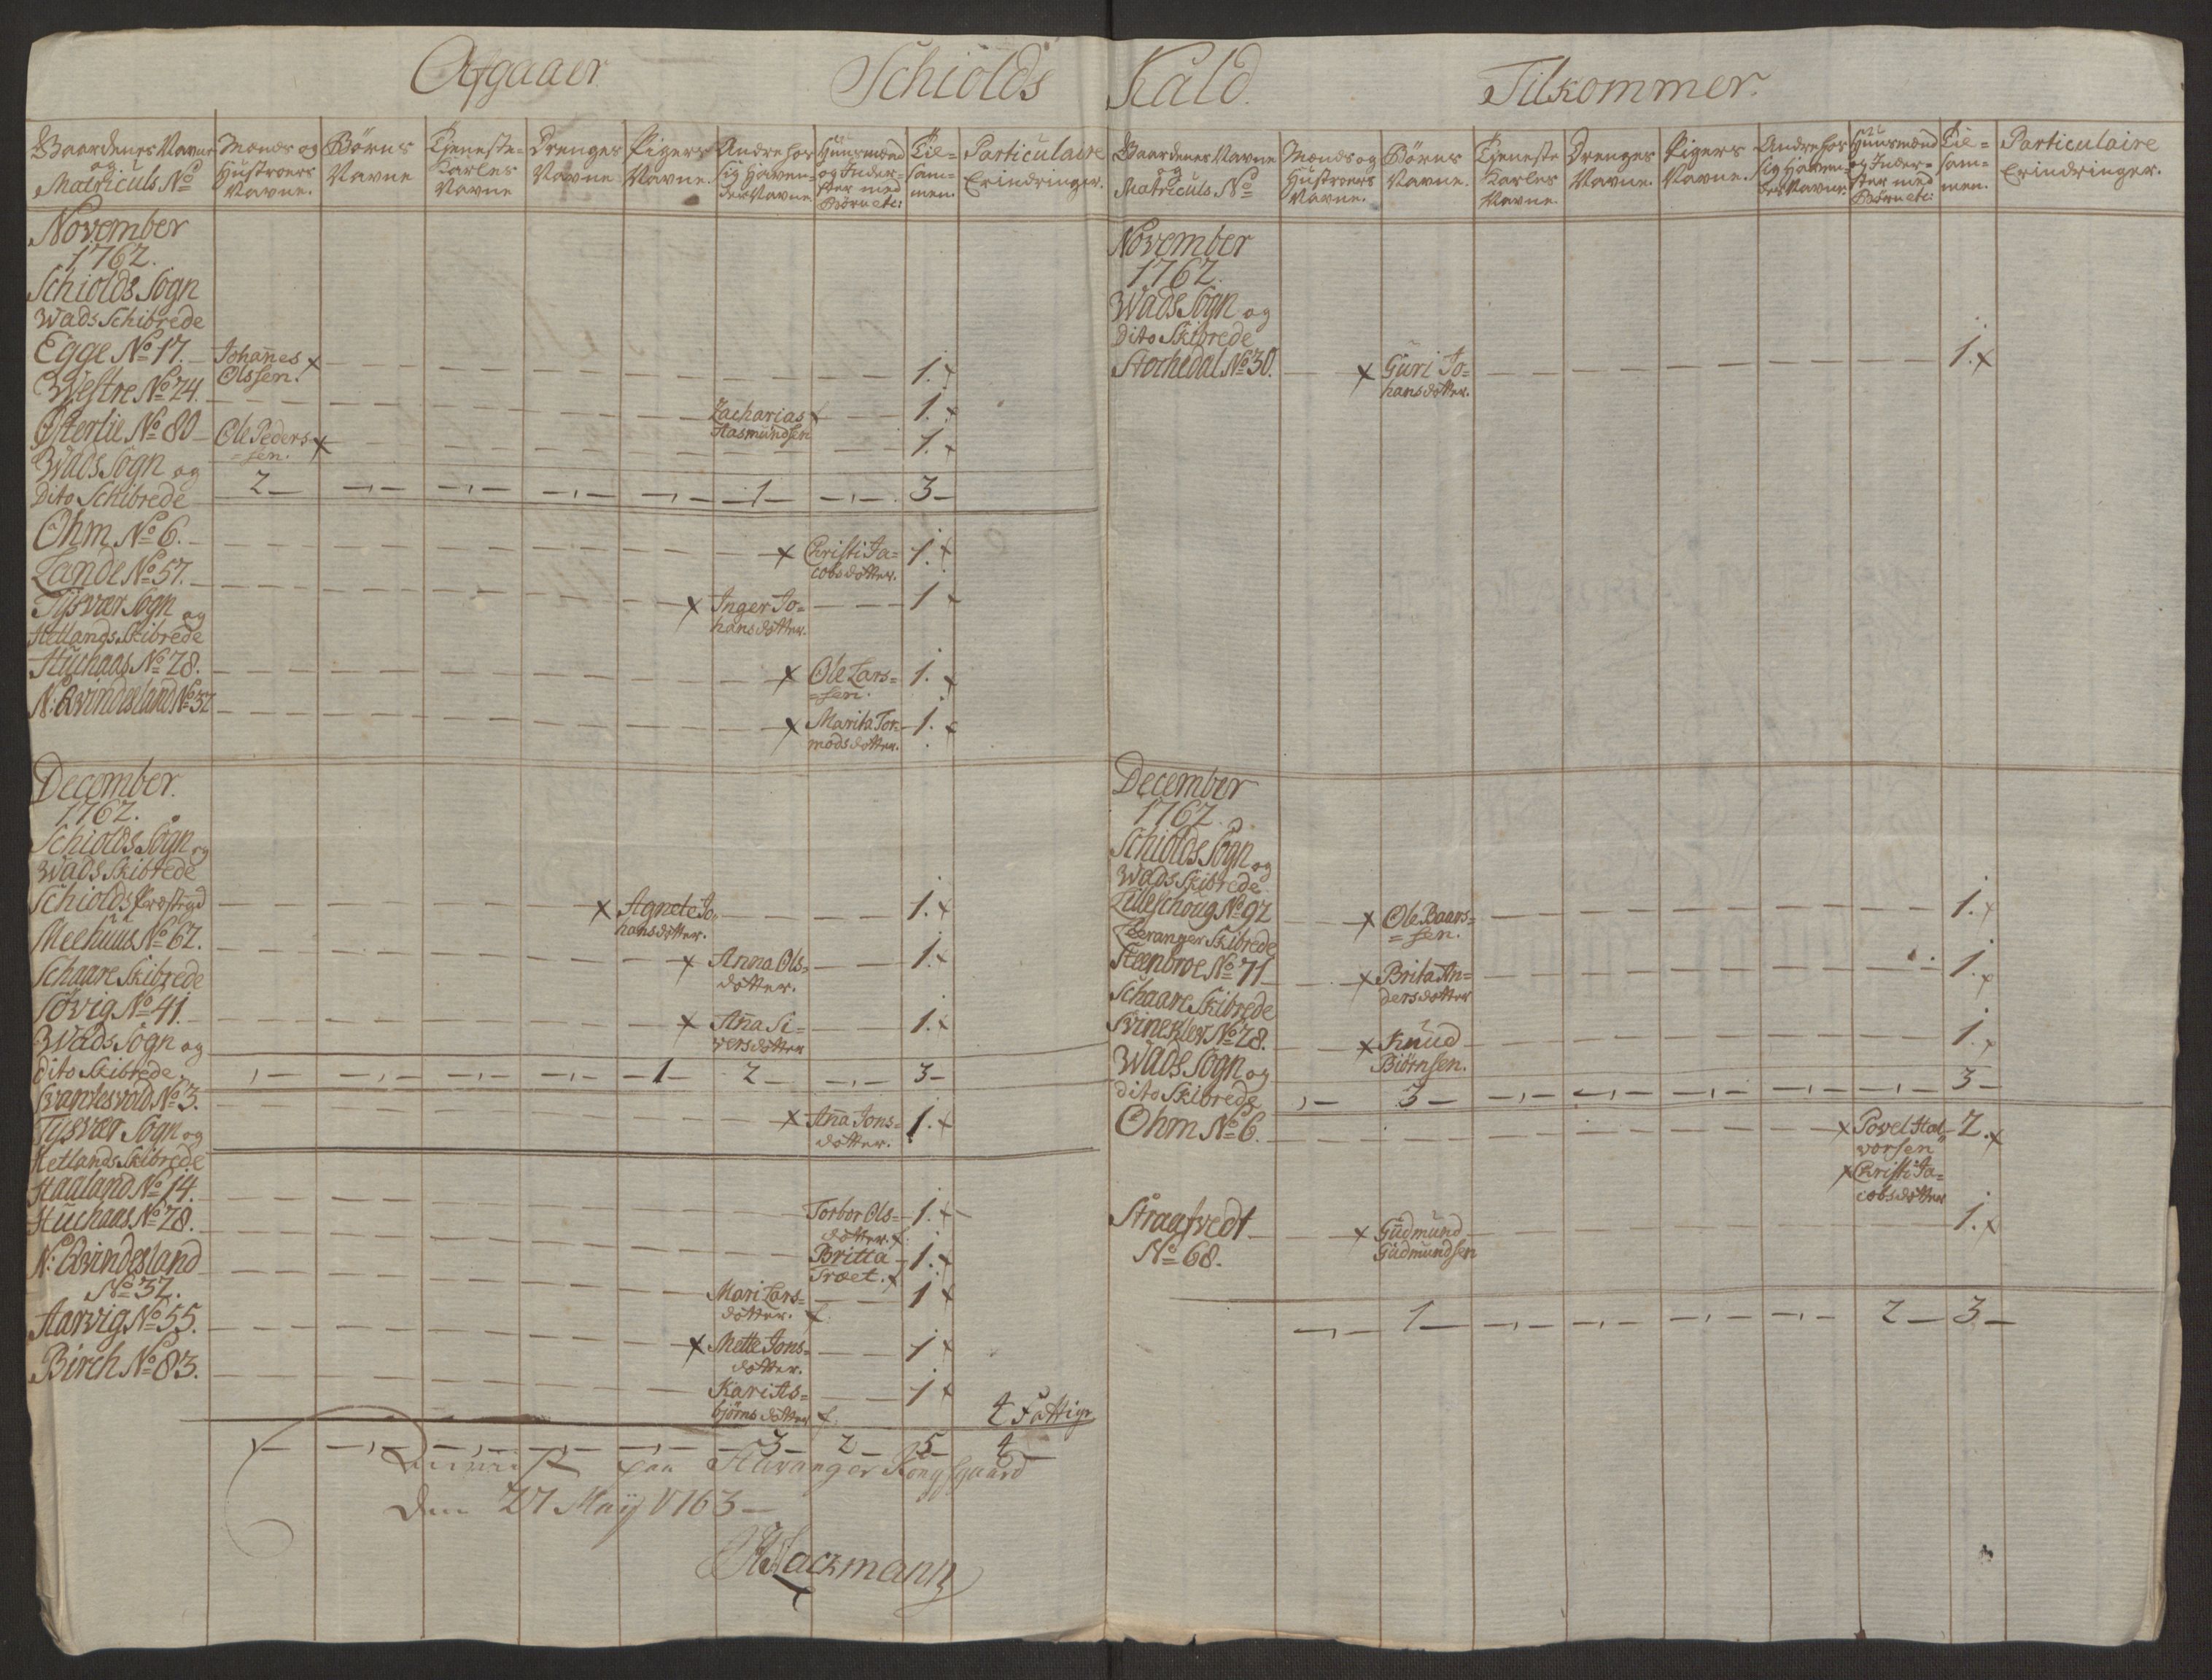 Afgaaer Schiolds Kald. Tilkommer.
Gaardenes Navne og Matriculs No
Mænds og Hustroers Navne.
Børns Navne
Tjeneste- Karles Navne
Drenges Navne
Pigers Navne.
Andre for sig Haven- des Navne
Huusmænd og Inder- ster med Børn etc:
Til- sam- men.
Particulaire Erindringer.
November
1762.
Schiolds Sogn
Wads Schibrede
Egge No 17. Johanes Olssen. x 1. x
Westre No 24. Zacharias Aasmundsen x 1. x
Østerlie No 80 Ole Peders= sen. x 1. x
Wads Sogn og
Dito Schibrede
2 1 3
Ohm No 6. x Christi Ja= cobsdotter. 1. x
Lande No 57. x Inger Jo= hansdotter. 1 x
Tysvær Sogn og
Hetlands Skibrede
Huchaas No 28. x Ole Lars= sen. 1. x
N: Qvindesland No 32 x Marita Tor= modsdotter. 1. x
December.
1762.
Schiolds Sogn og
Wads Skibrede
Schiolds Præstegd x Agnete Jo= hansdotter. 1. x
Meehuus No 62. x Anna Ols= dotter. 1. x
Schaare Skibrede
Søvig No 41. x Ana Si= versdotter 1. x
Wads Sogn og
Dito Skibrede.
1 2 3
Svartesvold No 3. x Ana Jons= dotter. 1. x
Tysvær Sogn og
Hetlands Skibrede
Haaland No 14. Torbor Ols= dotter. x 1. x
Huchaas No 28. Britta Træet. x 1. x
N: Qvindesland
No 32. Mari Lars= dotter. x 1 x
Aarvig No 55. x Mette Jons= dotter. 1 x
Birch No 83. Kari As= bjørnsdotter x 1 x
4 Fattige
3 2 5 4
paa Stavanger Kongsgaard
den 27 Maij 1763
Hackmann
Gaardenes Navne og Matriculs No
Mænds og Hustroers Navne.
Børns Navne.
Tjeneste Karles Navne.
Drenges Navne.
Pigers Navne.
Andre for sig Haven= des Navne.
Huusmænd og Inder= ster med Børn etc:
Til= sam= men.
Particulaire Erindringer.
November
1762.
Wads Sogn og
Dito Skibrede
Storhedal No 30. x Guri Jo= hansdotter. 1. x
December
1762.
Schiolds Sogn og
Wads Skibrede
Lilleschoug No 92 x Ole Baars= sen. 1. x
Leranger Skibrede
Steenbroe No 71 x Brita An= dersdotter 1. x
Schaare Skibrede
Svineklev No 28. x Knud Biørnsen. 1. x
Wads Sogn og
Dito Skibrede
3 3
Ohm No 6. x Povel Hal= vorsen 2. x
x Christi Ja= cobsdotter
Straatvedt
No 68. x Gudmund Gudmundsen 1. x
1 2 3